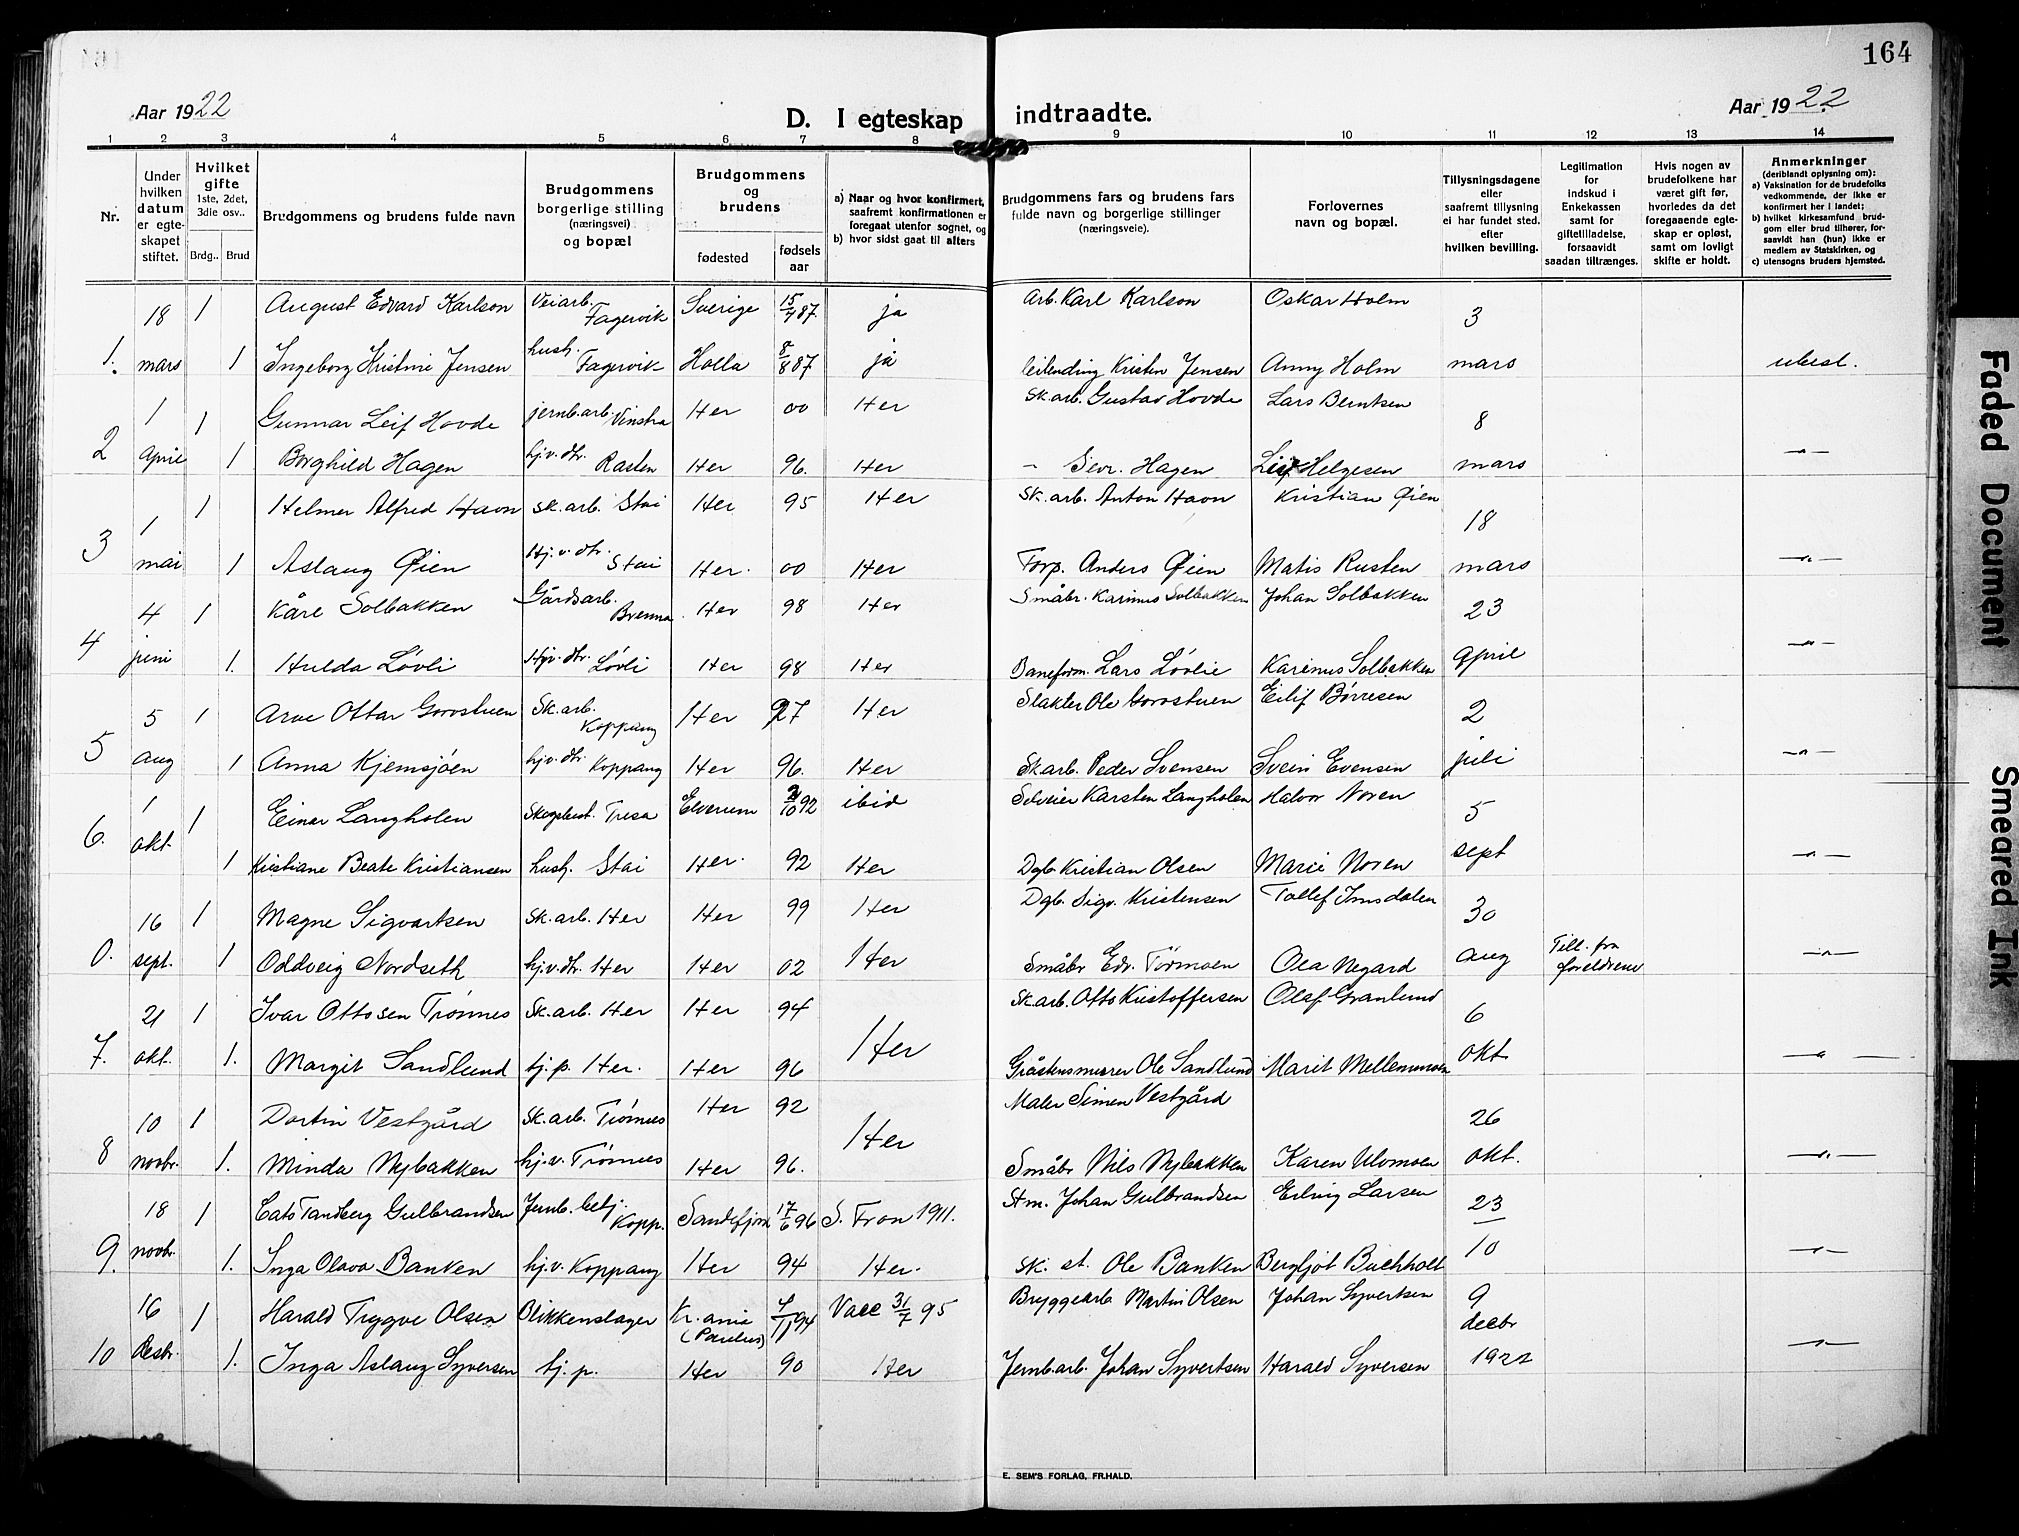 164
Aar 1922
D. I egteskap indtraadte.
Aar 1922
1 2 3 4 5 6 7 8 9 10 11 12 13 14
Nr.
Under hvilken datum er egteskapet stiftet.
Hvilket gifte 1ste, 2det, 3die osv..
Brdg.. Brud
Brudgommens og brudens fulde navn
Brudgommens borgerlige stilling (næringsvei) og bopæl
Brudgommens og brudens
fødested
fødselsaar
a) Naar og hvor konfirmert, saafremt konfirmationen er foregaat utenfor sognet, og
b) hvor sidst gaat til alters
Brudgommens fars og brudens fars fulde navn og borgerlige stillinger (næringsveie).
Forlovernes navn og bopæl.
Tillysningsdagene eller saafremt tillysning ei har fundet sted. efter hvilken bevilling.
Legitimation for indskud i Enkekassen samt for giftetilladelse, forsaavidt saadan tiltrænges.
Hvis nogen av brudefolkene har været gift før, hvorledes da det foregaaende egteskap er opløst, samt om lovligt skifte er holdt.
Anmerkninger (deriblandt oplysning om):
a) Vaksination for de brudefolks vedkommende, der ikke er konfirmert her i landet;
b) hvilket kirkesamfund brudgom eller brud tilhører, forsaavidt han (hun) ikke er medlem av Statskirken, og
c) utensogns bruders hjemsted.
18 1 August Edvard Karlson Veiarb. Fagervik Sverige 15/4 87 ja Arb. Karl Karlson Oskar Holm 3
1. mars 1 Ingeborg Kristine Jensen husj. Fagervik Holla 8/8 87 ja leilending Kristen Jensen Anny Holm mars ubesl.
1 1 Gunnar Leif Hovde jernb.arb. Vinstra Her 00 Her Sk.arb. Gustav Hovde Lars Berntsen 8
2 April 1 Borghild Hagen hjv.dtr. Rasten Her 96. Her - Sevr. Hagen Leif Helgesen mars -"-
1 1 Helmer Alfred Havn sk.arb. Stai Her 95 Her Sk.arb. Anton Havn Kristian Øien 18
3 mai 1 Aslaug Øien Hj.v.dtr. Stai Her. 00 Her Torp. Anders Øien Matis Rusten mars -"-
4 1 Kåre Solbakken Gårdsarb. Brenna. Her 98 Her Småbr. Karinus Solbakken Johan Solbakken 23
4 juni 1. Hulda Løvli Hjv.dtr. Løvli Her 98 Her Baneform. Lars Løvlie Karinus Solbakken April -"-
5 1 Arve Ottar Gorostuen Sk.arb. Koppang Her 97 Her Slakter Ole Gorostuen Eilif Børresen 2
5 aug 1 Anna Kjemsjøen hjv.dtr. Koppang Her 96. Her Skarb. Peder Svensen Svein Evensen juli -"-
1 1 Einar Langholen Skogbest. Tresa Elverum 2/10 92 ibid Selveier Karsten Langholen Halvor Noren 5
6. okt. 1 Kristiane Beate Kristiansen husj. Stai Her. 92 Her Dgb Kristian Olsen Marie Noren sept -"-
16 1 Magne Sigvartsen sk.arb. Her Her 99 Her Dgb. Sigv. Kristensen Tollef Imsdalen 30
0. sept. 1 Oddveig Nordseth hjv.dtr. Her Her 02 Her Småbr Edv. Tørmoen Ola Negard aug Till. fra foreldrene -"-
21 1 Ivar Ottosen Trønnes Sk.arb. Her Her 94 Sk.arb. Otto Kristoffersen Olaf Granlund 6
7. okt. 1. Margit Sandlund hj.p. Her. Her 96 Her Gråstensmurer Ole Sandlund Marit Mellemmoen okt. -"-
10 1 Dortin Vestgård Sk.arb. Trønnes Her 92 Maler Simen Vestgård 26
8 novbr. 1. Minda Nybakken hj.v. Trønnes Her 96. Her Småbr Nils Nybakken Karen Ulvmoen okt. -"-
18 1 Cato Tandberg Gulbrandsen Jernb. betj. Kopp. Sandefjord 17/6 96 S. Fron 1911. Stm. Johan Gulbrandsen Erling Larsen 23
9. novbr. 1. Inga Olava Banken hj.v. Koppang Her 94 Her. Sk. st. Ole Banken Bergljot Buchholt 10 -"-
16 1 Harald Trygve Olsen Blikkenslager Kr.ania (Paulus) 4/11 94 Vacc 31/7 95 Bryggearb Martin Olsen Johan Syvertsen 9
10 Desbr. 1. Inga Aslaug Syversen hj.p. Her 90 Her Jernb.arb. Johan Syvertsen Harald Syversen decbr 1922 -"-
E. SEM'S FORLAG, FR.HALD.
Faded Document
Smeared Ink